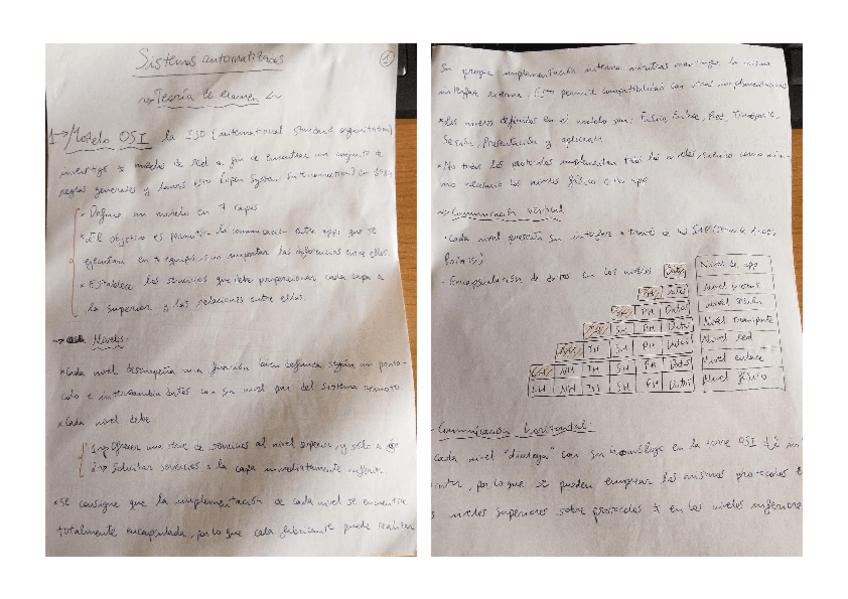 Sistemas automatizados
1
Teoría de examen
1→Modelo OSI la ISO (international standard organization)
investigó ≠ modelos de red a fin de encontrar un conjunto de
reglas generales y lanzó este (open System Interconnection) en
• Define un modelo en 7 capas
• El objetivo es permitir la comunicación entre apps que se
ejecutan en ≠ equipos sin importar las diferencias entre ellos.
• Establece los servicios que debe proporcionar cada capa a
la superior y las relaciones entre ellas.
→ Niveles:
• Cada nivel desempeña una función bien definida según un proto-
colo e intercambia datos con su nivel par del sistema remoto
• Cada nivel debe:
1→ Ofrecer una serie de servicios al nivel superior, y sólo a ese
2→ Solicitar servicios a la capa inmediatamente inferior.
• Se consigue que la implementación de cada nivel se encuentre
totalmente encapsulada, por lo que cada fabricante puede realizar
Su propia implementación interna mientras mantenga la misma
interfaz externa. Esto permite compatibilidad con otras implementaciones
• Los niveles definidos en el modelo son: Físico, Enlace, Red, Transporte,
Sesión, Presentación y aplicación
• No todos los protocolos implementan todos los niveles, siendo como míni-
mo necesario los niveles físico e app
→ Comunicación vertical
• Cada nivel presenta su interfaz a través de los SAP (service access
Points)
• Encapsulación de datos en los niveles
Datos Nivel de app
PH Datos Nivel present
SH PH Datos Nivel sesión
TH SH PH Datos Nivel transporte
NH TH SH PH Datos Nivel red
LH NH TH SH PH Datos Nivel enlace
LH NH TH SH PH Datos Nivel físico
Comunicación horizontal:
Cada nivel "dialoga" con su homólogo en la torre OSI
por lo que se pueden emplear los mismos protocolos
niveles superiores sobre protocolos ≠ en los niveles inferiores